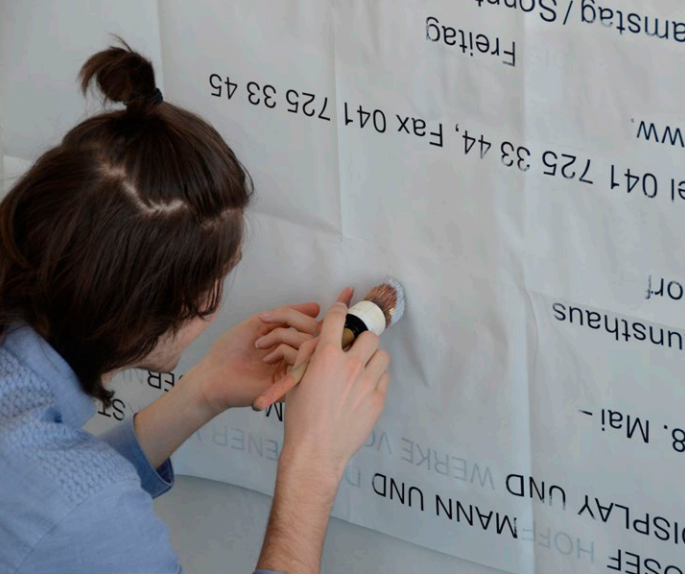 OSEF HOFFMANN UND D ENER ST
DISPLAY UND WERKE VO
8. Mai –
unsthaus
orf
el 041 725 33 44, Fax 041 725 33 45
ww.
Freitag
amstag/Sonnt